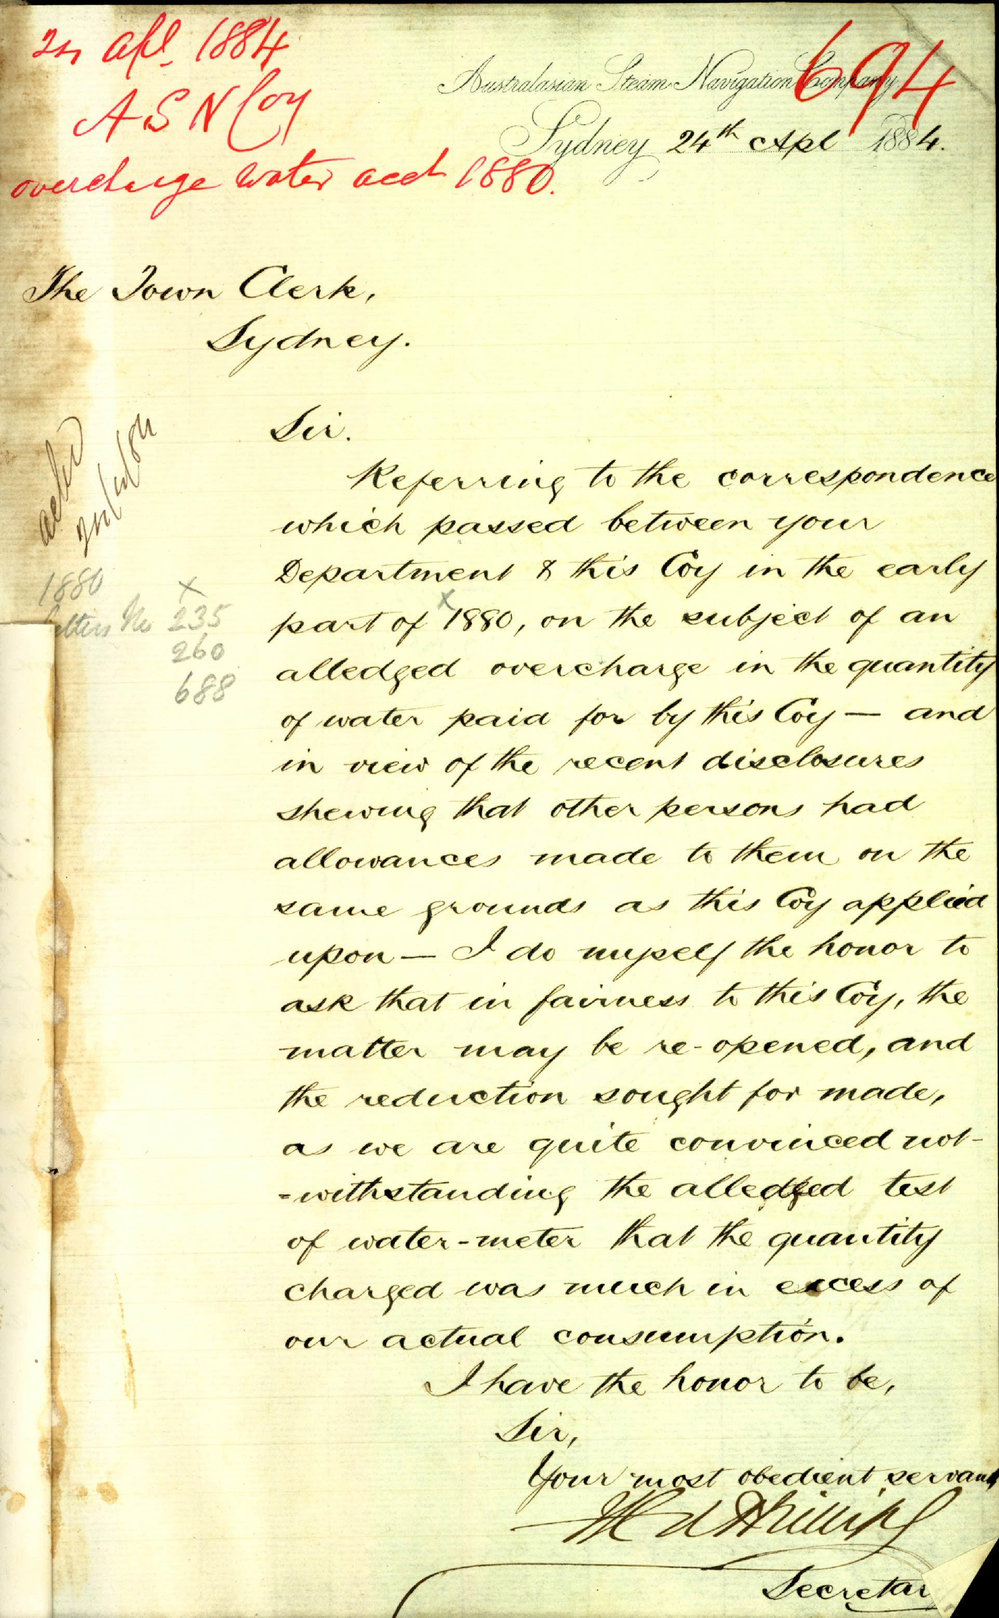 24 Apl 1884
A S N Coy
overcharge water acct 1880.
694
Australasian Steam Navigation Company
Sydney 24th Apl 1884.
The Town Clerk,
Sydney.
Sir.
Referring to the correspondence
which passed between your
Department & this Coy in the early
x
part of 1880, on the subject of an
alledged overcharge in the quantity
of water paid for by this Coy — and
in view of the recent disclosures
shewing that other persons had
allowances made to them on the
same grounds as this Coy applied
upon — I do myself the honor to
ask that in fairness to this Coy, the
matter may be re-opened, and
the reduction sought for made,
as we are quite convinced not-
-withstanding the alledged test
of water-meter that the quantity
charged was much in excess of
our actual consumption.
I have the honor to be,
Sir,
Your most obedient servant
Secretar
ackd
1880
x
letters No 235
260
688